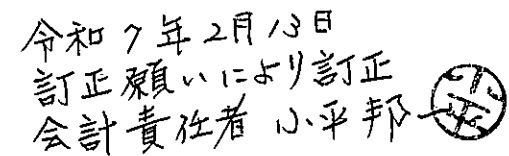 令和7年2月13日
訂正願いにより訂正
会計責任者 小平邦一